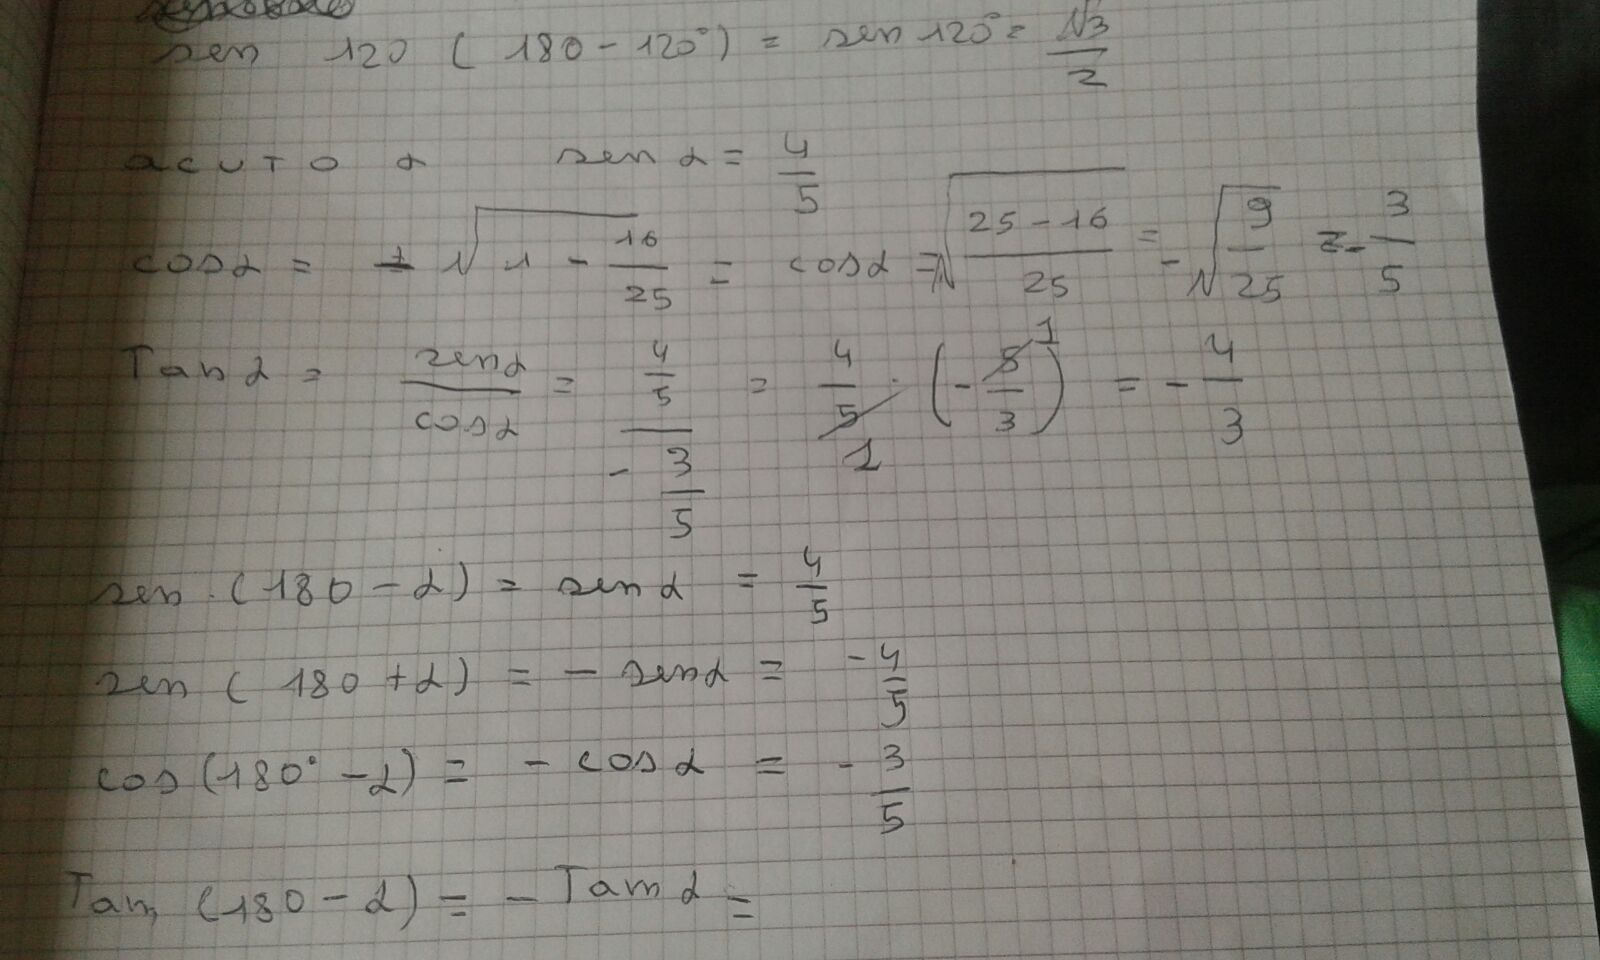 sen 120 ( 180 - 120° ) = sen 120° = √3/2
acuto α sen α = 4/5
cos α = ± √1 - 16/25 = cos α = √25-16/25 = - √9/25 = - 3/5
Tan α = sen α/cos α = 4/5/- 3/5 = 4/5 · (- 5/3) 1 1 = - 4/3
sen (180 - α) = sen α = 4/5
sen ( 180 + α) = - sen α = - 4/5
cos (180° - α) = - cos α = - 3/5
Tan (180 - α) = - Tan α =